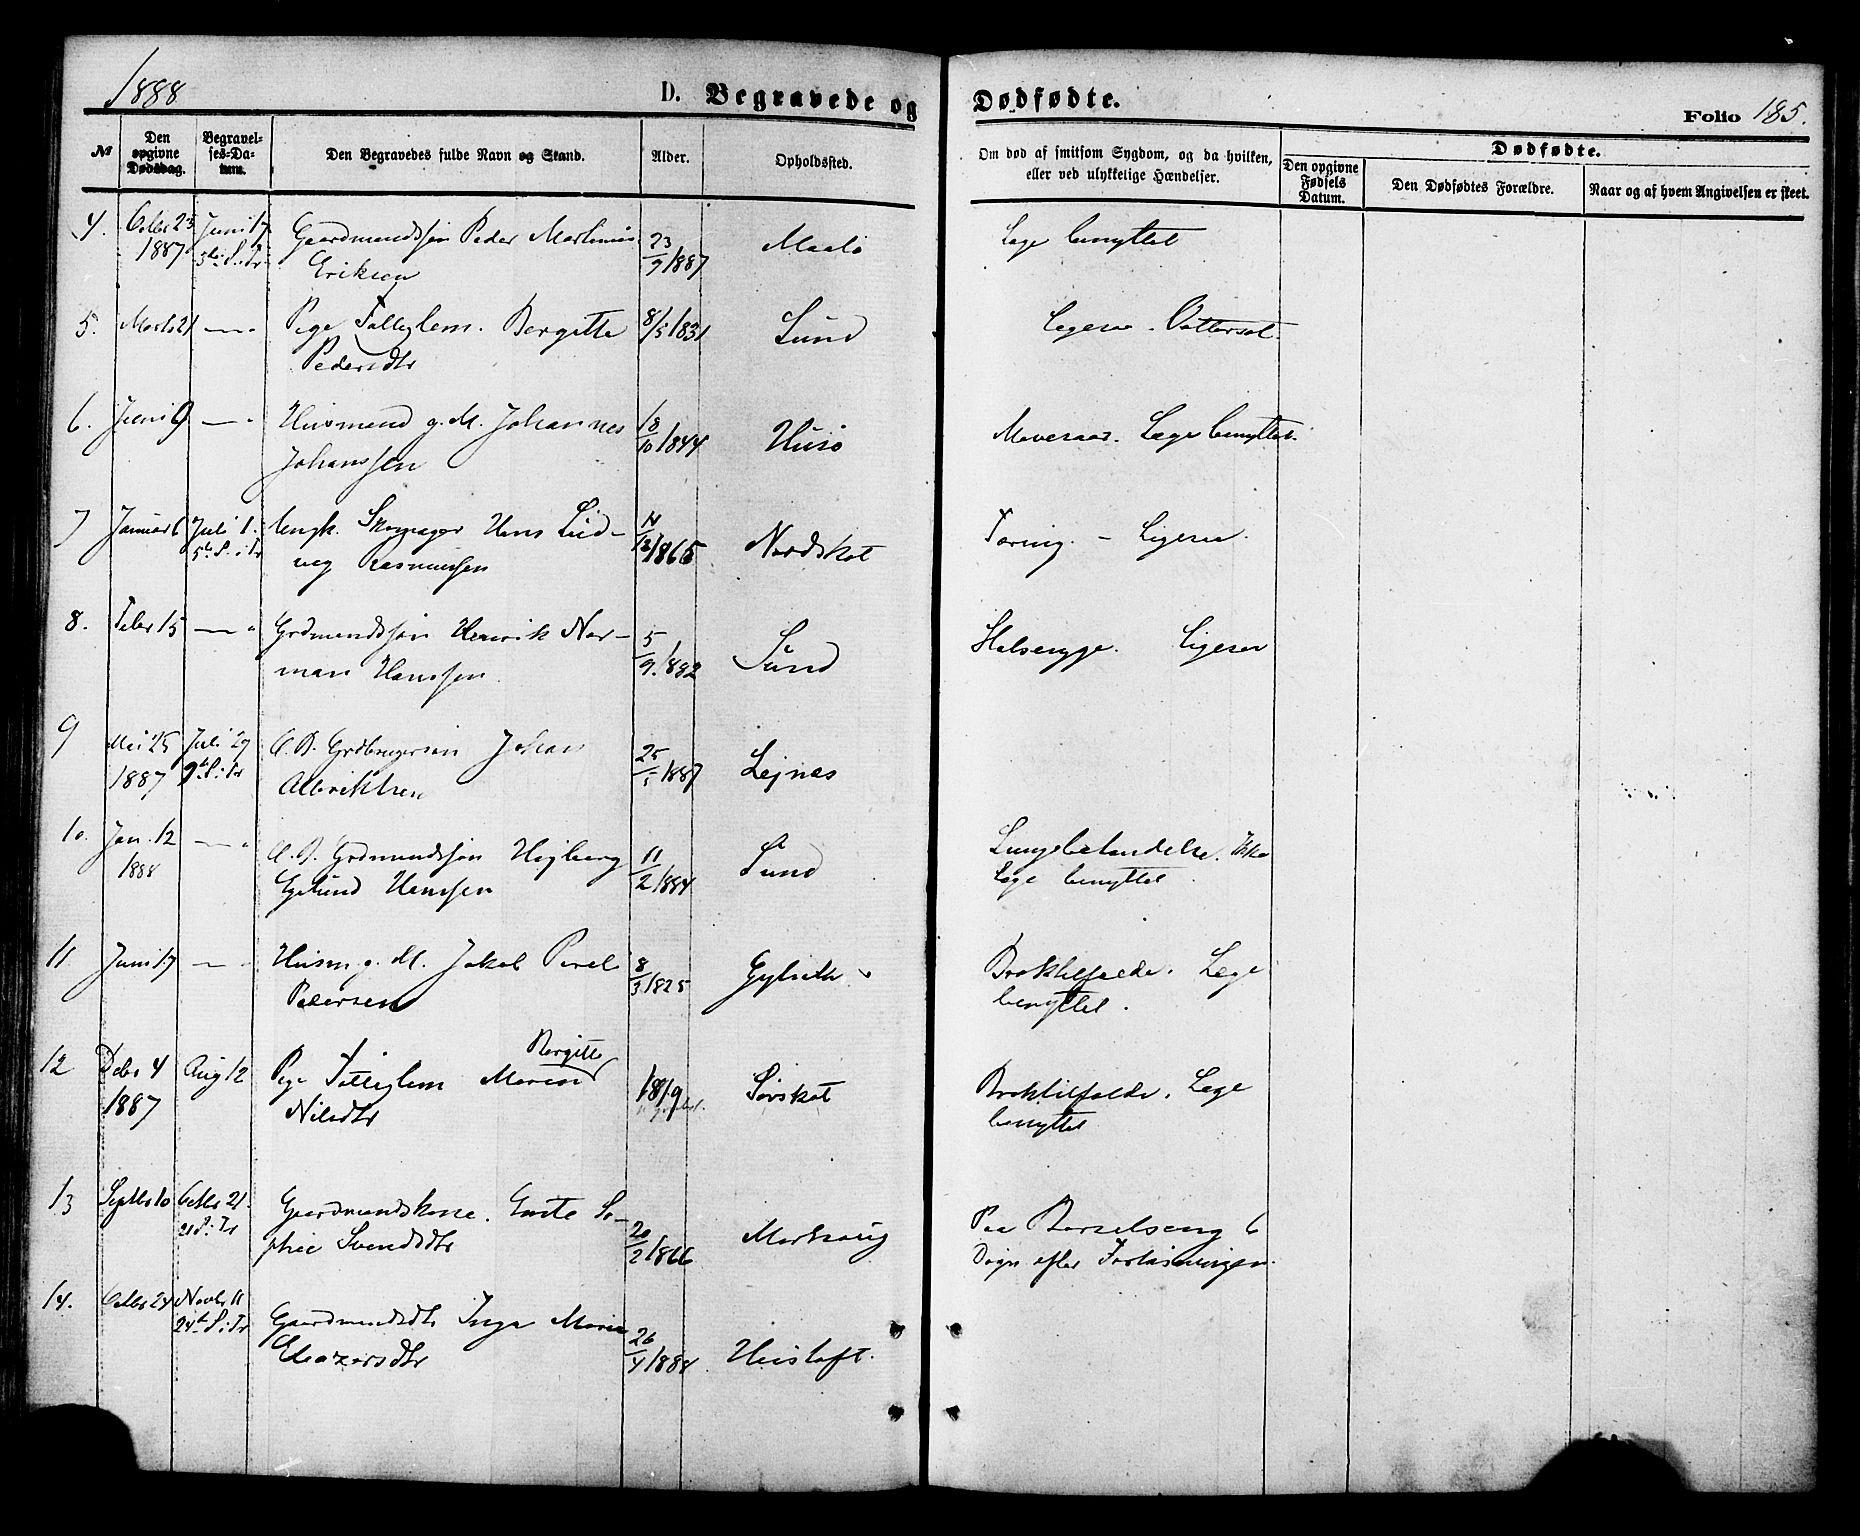 1888
D. Begravede og Dødfødte.
Folio 185.
№
Den opgivne Dødsdag.
Begravelses-Datum.
Den Begravedes fulde Navn og Stand.
Alder.
Opholdssted.
Om død af smitsom Sygdom, og da hvilken,
eller ved ulykkelige Hændelser.
Dødfødte.
Den opgivne Fødsels Datum.
Den Dødfødtes Forældre.
Naar og af hvem Angivelsen er skeet.
4. Octbr 23 Juni 17 Gaardmandssøn Peder Martinus 23/9 1887 Maalø Læge benyttet
1887 3die S. i Tr Erikson
5. Marts 21 — " — Pige Fattiglem. Bergitte 8/5 1831 Sund Ligesaa. Vattersot.
Pedersdtr
6. Juni 9 — " — Husmand g. M. Johannes 18/10 1844 Husø Mavesaar. Læge benyttet.
Johanssen
7 Januar 6 Juli 1. Ungk. Skomager Hans Lud- Nordskot Tæring. — Ligesaa.
5te S. i Tr vig Rasmussen
8. Febr 15 — " — Grdmandssøn Henrik Nor- 5/9 1882 Sund Halssyge. Ligesaa
man Hanssen
9 Mai 25 Juli 29 Grdbrugersøn Johan 25/5 1887 Lejnes
1887 9de S. i Tr Albriktsen
10. Jan. 12 — " — Grdmandssøn Hojberg 11/2 1884 Sund Lungebetændelse. Ikke
1888 Egelund Hanssen Læge benyttet.
11. Juni 17 — " — Husm g. M. Jakob Parel 8/3 1825 Gylseth Broktilfælde. Læge
Pedersen benyttet.
12 Decbr 4 Aug 12 Pige Fattiglem Maren Bergitte 1819 Sørskot Broktilfælde. Læge
1887 Nilsdtr benyttet
13 Septbr 10 Octbr 21. Gaardmandskone. Ente So- 20/2 1866 Markoug Paa Barselseng 6
21 S. i Tr phie Svendsdtr Døgn efter Forløsningen.
14. Octbr 24 Novbr 11 Gaardmandsdtr Inga Marie 26/4 1888 Husloft.
24de S. i Tr Eleazersdtr